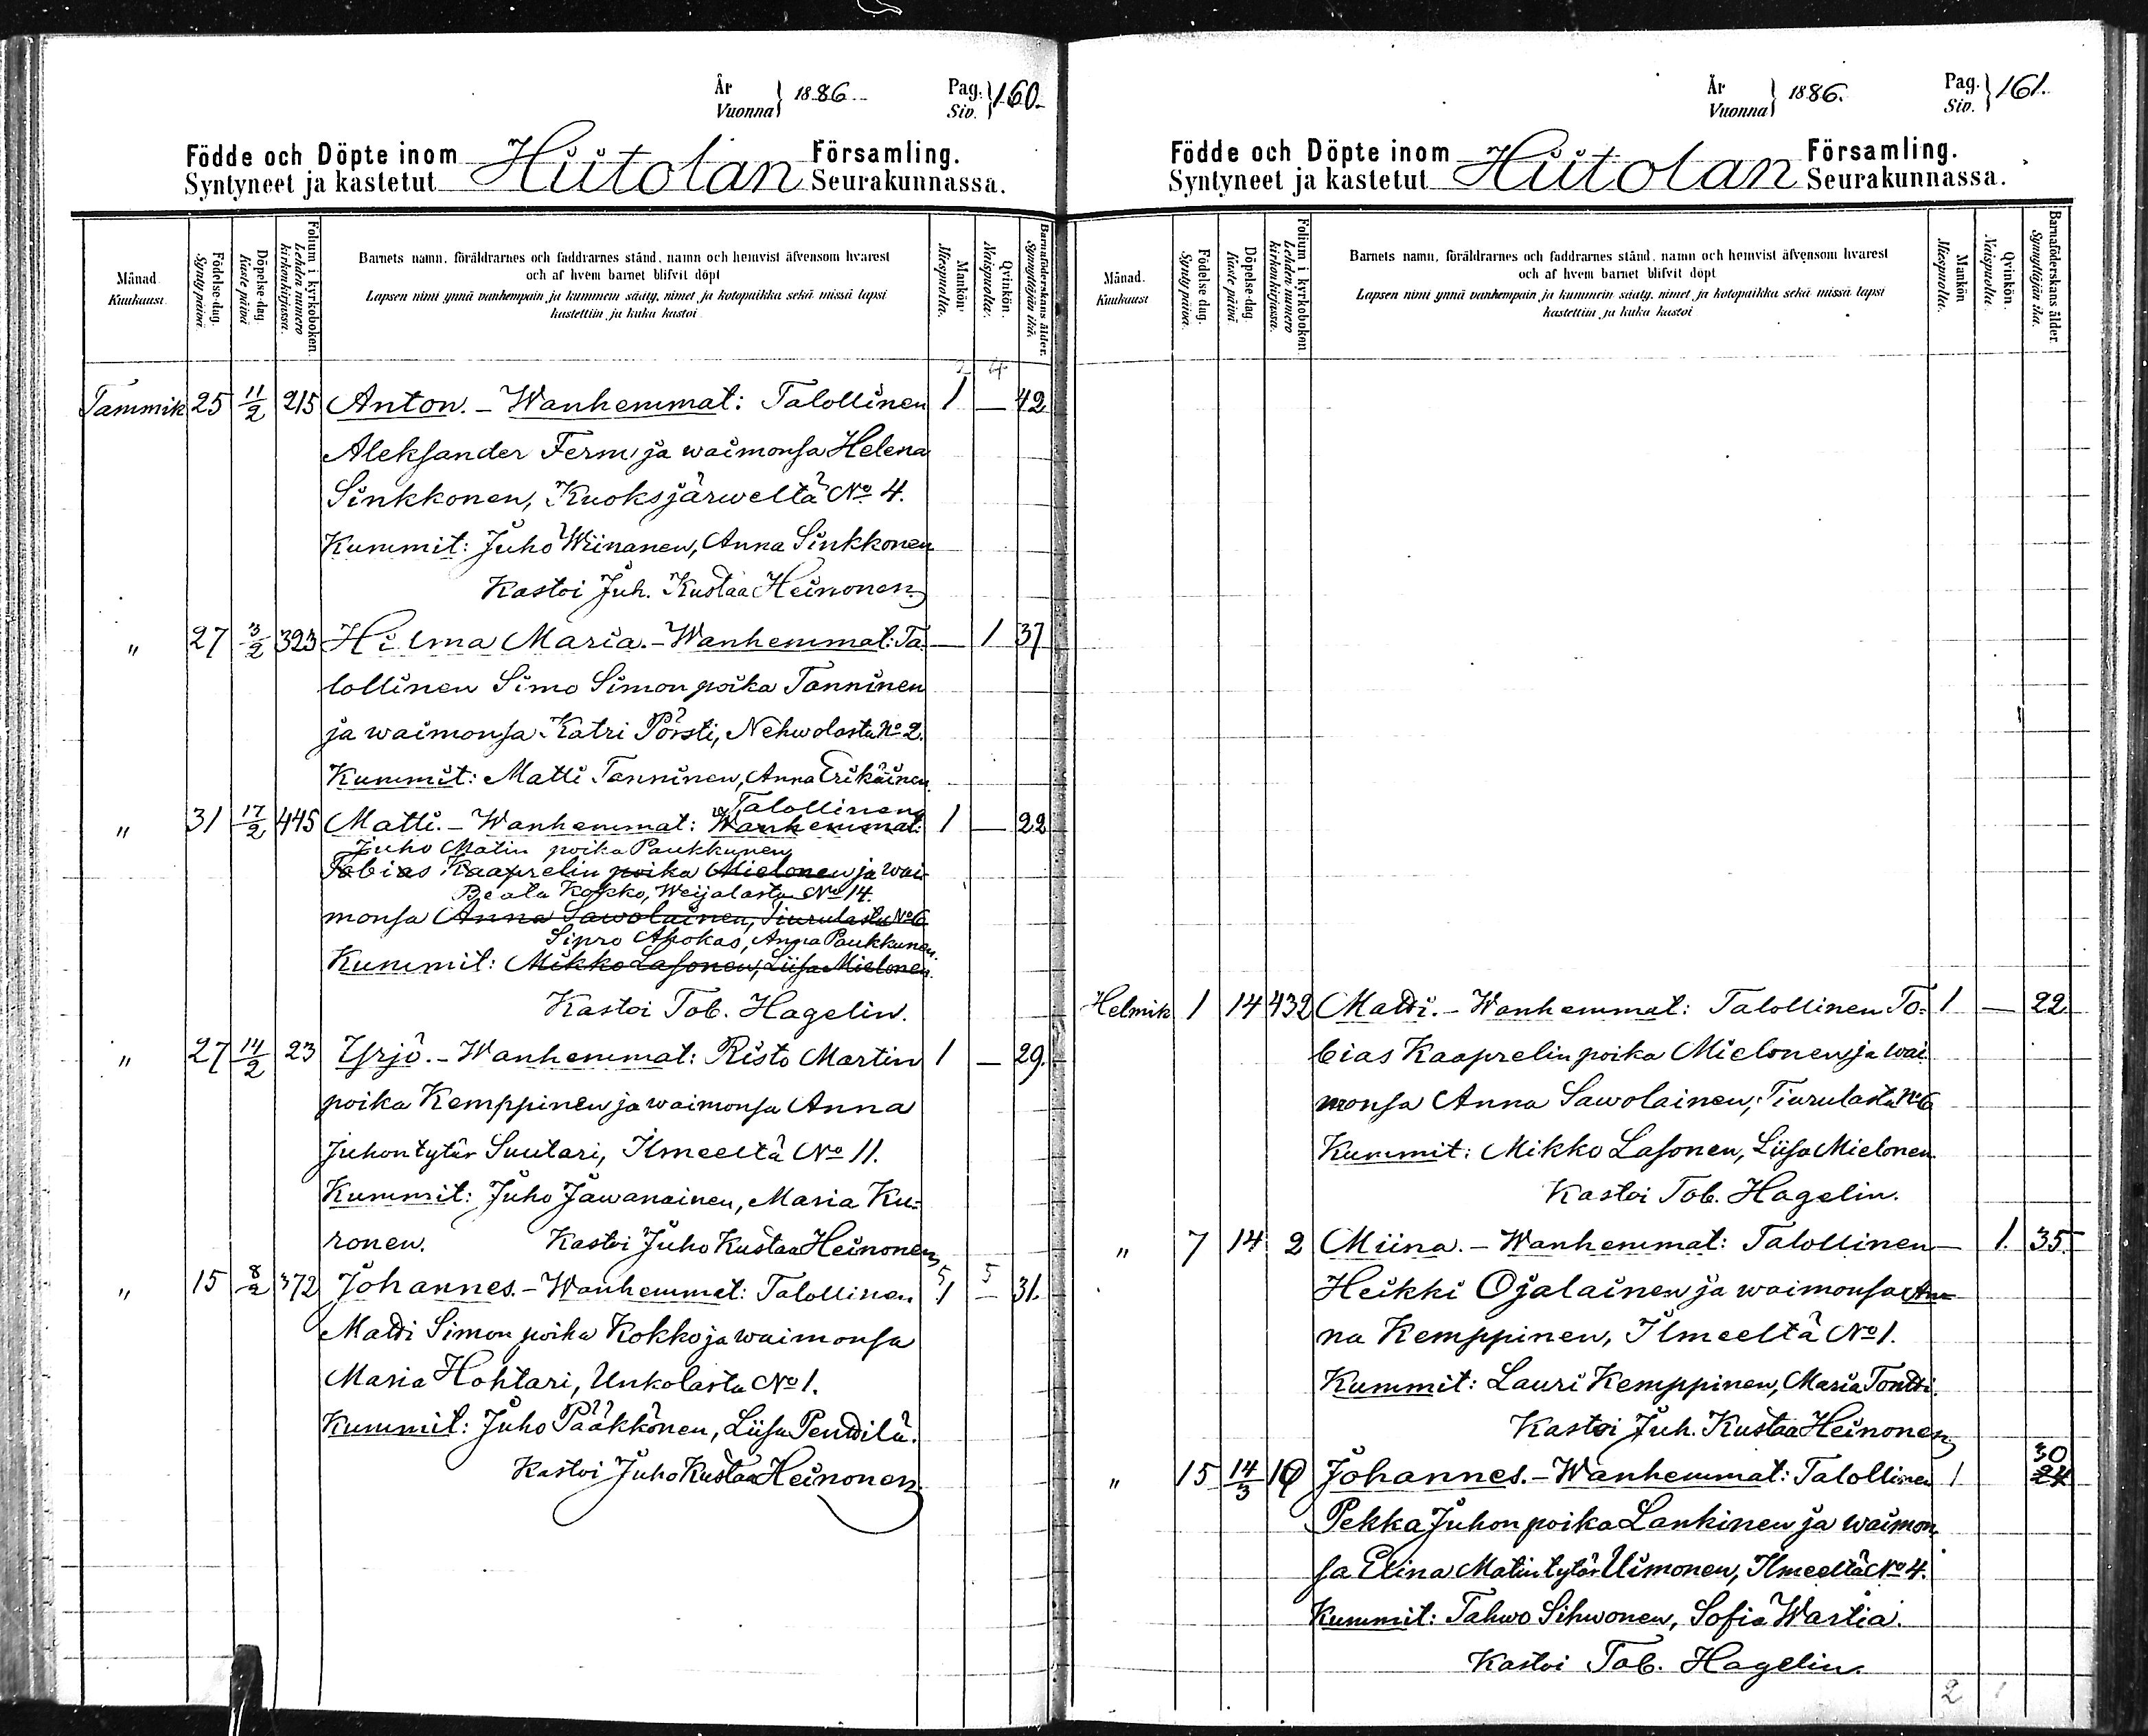 År
Vuonna } 1886.
Pag.
Siv. } 160.
Födde och Döpte inom Hiitolan Församling.
Syntyneet ja kastetut Seurakunnassa.
Månad
Kuukausi.
Födelse-dag.
Synty päivä.
Döpelse-dag.
Kaste päivä
Folium i kyrkoboken.
Lehden numero kirkonkirjassa.
Barnets namn, föräldrarnes och faddrarnes stånd, namn och hemvist äfvensom hvarest
och af hvem barnet blifvit döpt
Lapsen nimi ynnä vanhempain ja kummein sääty, nimet ja kotopaikka sekä missä lapsi
kastettiin ja kuka kastoi
Mankön.
Miespuolta.
Qvinkön.
Naispuolta.
Barnaföderskans ålder.
Synnyttäjän ikä.
2 4
Tammik 25 11/2 215 Anton. - Wanhemmat: Talollinen 1 — 42
Aleksander Ferm ja waimonsa Helena
Sinkkonen, Kuoksjärweltä No 4.
Kummit: Juho Wiinanen, Anna Sinkkonen
Kastoi Juh. Kustaa Heinonen.
" 27 3/2 323 Hilma Maria. - Wanhemmat: Ta- — 1 37
lollinen Simo Simon poika Tanninen
ja waimonsa Katri Pörsti, Nehwolasta No 2.
Kummit: Matti Tanninen, Anna Erikäinen.
Talollinen
" 31 17/2 445 Matti. - Wanhemmat: Wanhemmat: 1 — 22
Juho Matin poika Paukkunen
Tobias Kaaprelin poika Mielonen ja wai-
Beata Kokko, Weijalasta No 14.
monsa Anna Sawolainen, Tiurulasta No 6
Sipro Ahokas, Anna Paukkunen.
Kummit: Mikko Lasonen, Liisa Mielonen.
Kastoi Tob. Hagelin.
" 27 14/2 23 Yrjö. - Wanhemmat: Risto Martin 1 — 29.
poika Kemppinen ja waimonsa Anna
Juhontytär Suutari, Ilmeeltä No 11.
Kummit: Juho Jawanainen, Maria Ku-
ronen. Kastoi Juho Kustaa Heinonen
5 5
" 15 8/2 372 Johannes. - Wanhemmat: Talollinen 1 — 31.
Matti Simon poika Kokko ja waimonsa
Maria Hohtari, Unkolasta No 1.
Kummit: Juho Pääkkönen, Liisa Penttilä.
Kastoi Juho Kustaa Heinonen
År
Vuonna } 1886.
Pag.
Siv. } 161.
Födde och Döpte inom Hiitolan Församling.
Syntyneet ja kastetut Seurakunnassa.
Månad.
Kuukausi
Födelse dag.
Synty päivä.
Döpelse-dag.
Kaste päivä
Folium i kyrkoboken.
Lehden numero kirkonkirjassa.
Barnets namn, föräldrarnes och faddrarnes stånd, namn och hemvist äfvensom hvarest
och af hvem barnet blifvit döpt
Lapsen nimi ynnä vanhempain ja kummein sääty, nimet ja kotopaikka sekä missä lapsi
kastettiin ja kuka kastoi
Mankön
Miespuolta.
Qvinkön.
Naispuolta.
Barnaföderskans ålder.
Synnyttäjän ikä.
Helmik 1 14 432 Matti. - Wanhemmat: Talollinen To- 1 — 22
bias Kaaprelin poika Mielonen ja wai
monsa Anna Sawolainen, Tiurulasta No 6
Kummit: Mikko Lasonen, Liisa Mielonen
Kastoi Tob. Hagelin.
" 7 14 2 Miina. - Wanhemmat: Talollinen — 1. 35.
Heikki Ojalainen ja waimonsa An-
na Kemppinen, Ilmeeltä No 1.
Kummit: Lauri Kemppinen, Maria Tontti.
Kastoi Juh. Kustaa Heinonen.
30
" 15 14/3 10 Johannes. - Wanhemmat: Talollinen 1 24
Pekka Juhon poika Lankinen ja waimon-
sa Elina Matintytär Uimonen, Ilmeeltä No 4.
Kummit: Tahwo Sihwonen, Sofia Wartia.
Kastoi Tob. Hagelin.
2 1